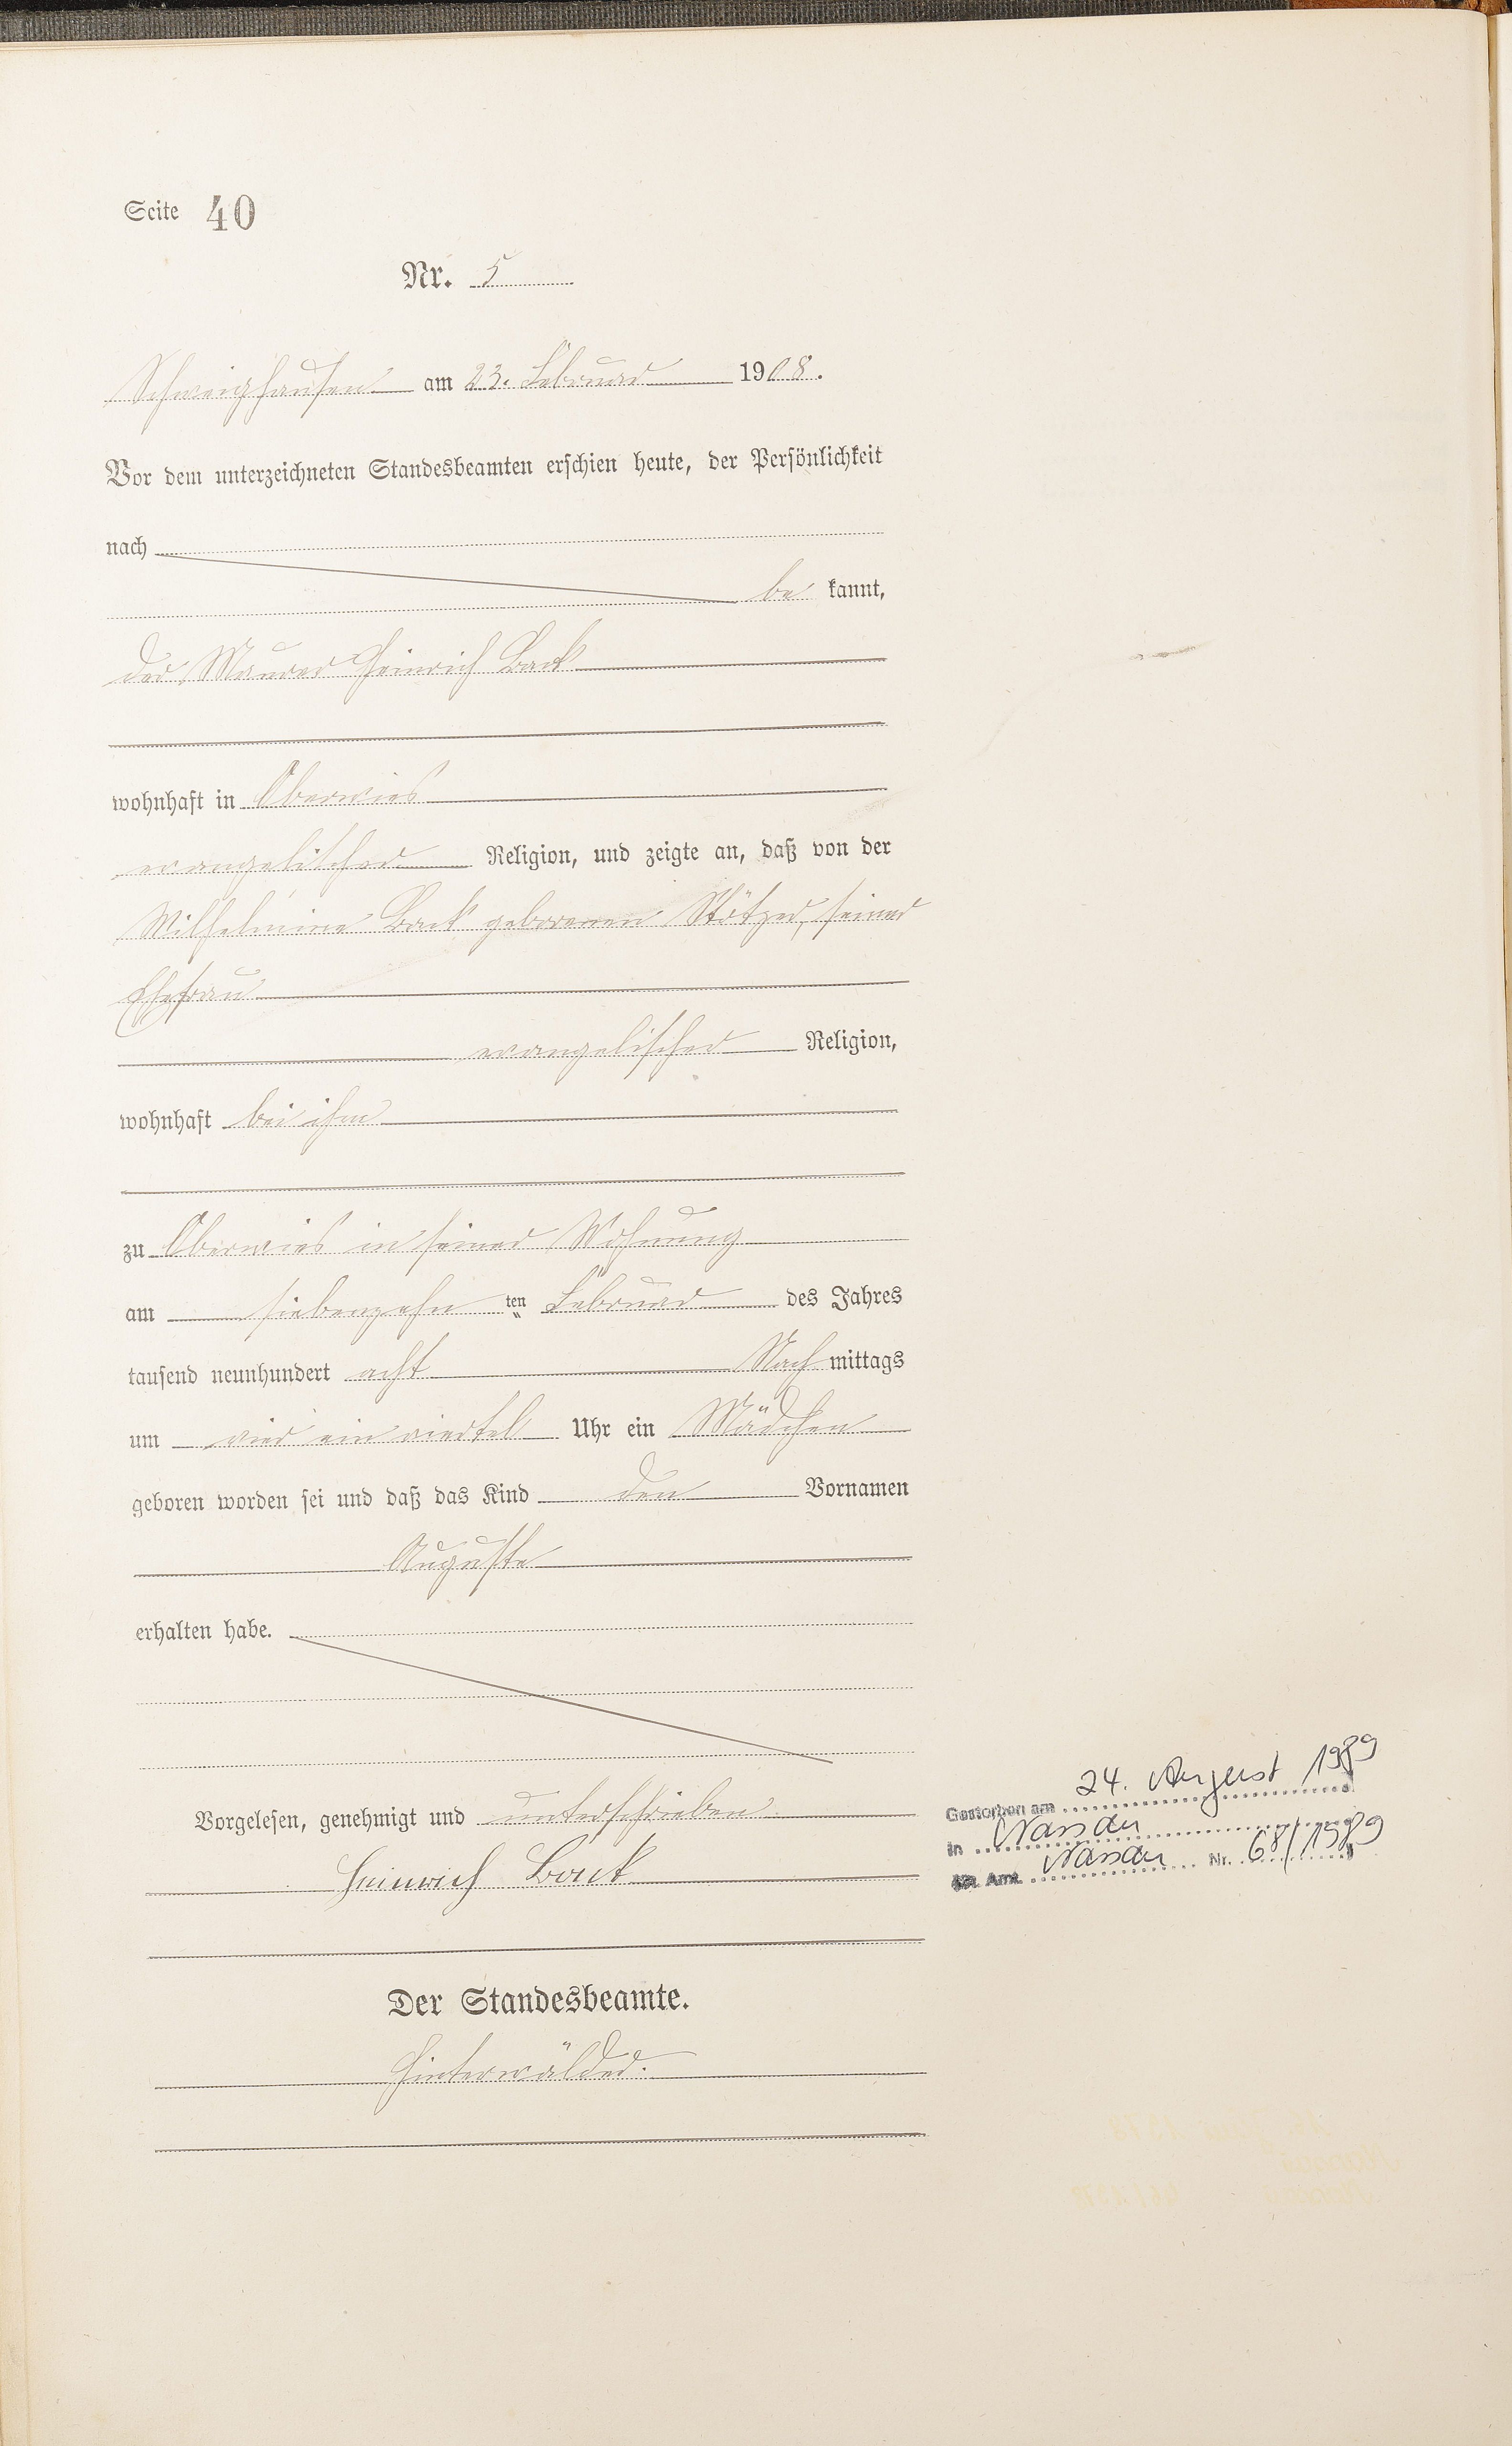 Seite 40
Nr. 5
Schweighausen am 23. Februar 1908.
Vor dem unterzeichneten Standesbeamten erschien heute, der Persönlichkeit
nach
be kannt,
der Maurer Heinrich Back
wohnhaft in Oberwies
evangelischer Religion, und zeigte an, daß von der
Wilhelmine Back geborenen Stötzer, seiner
Ehefrau
evangelischer Religion,
wohnhaft bei ihm
zu Oberwies in seiner Wohnung
am siebenzehn ten Februar des Jahres
tausend neunhundert acht Nach mittags
um vier ein viertel Uhr ein Mädchen
geboren worden sei und daß das Kind den Vornamen
Auguste
erhalten habe.
Vorgelesen, genehmigt und unterschrieben
Heinrich Back
Der Standesbeamte.
Hinterwälder.
Gestorben am 24. August 1989
in Nassau
St. Amt. Nassau Nr. 68/1989